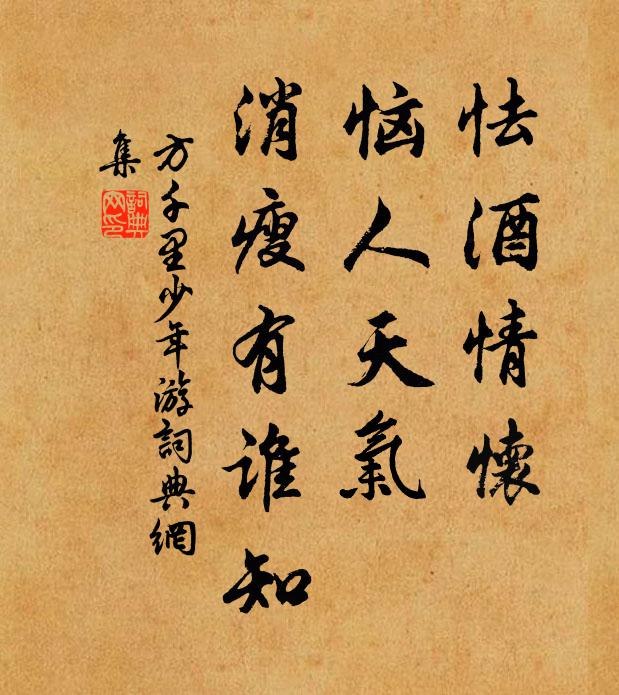 怯酒情懷
恼人天氣
消瘦有谁知
方千里少年游詞典網
集
詞典網印